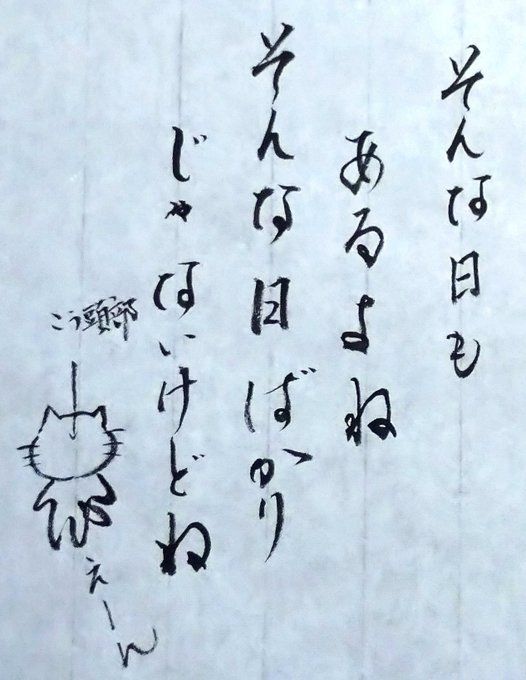 そんな日も
あるよね
そんな日ばかり
じゃないけどね
こう頭部
ぴえーん